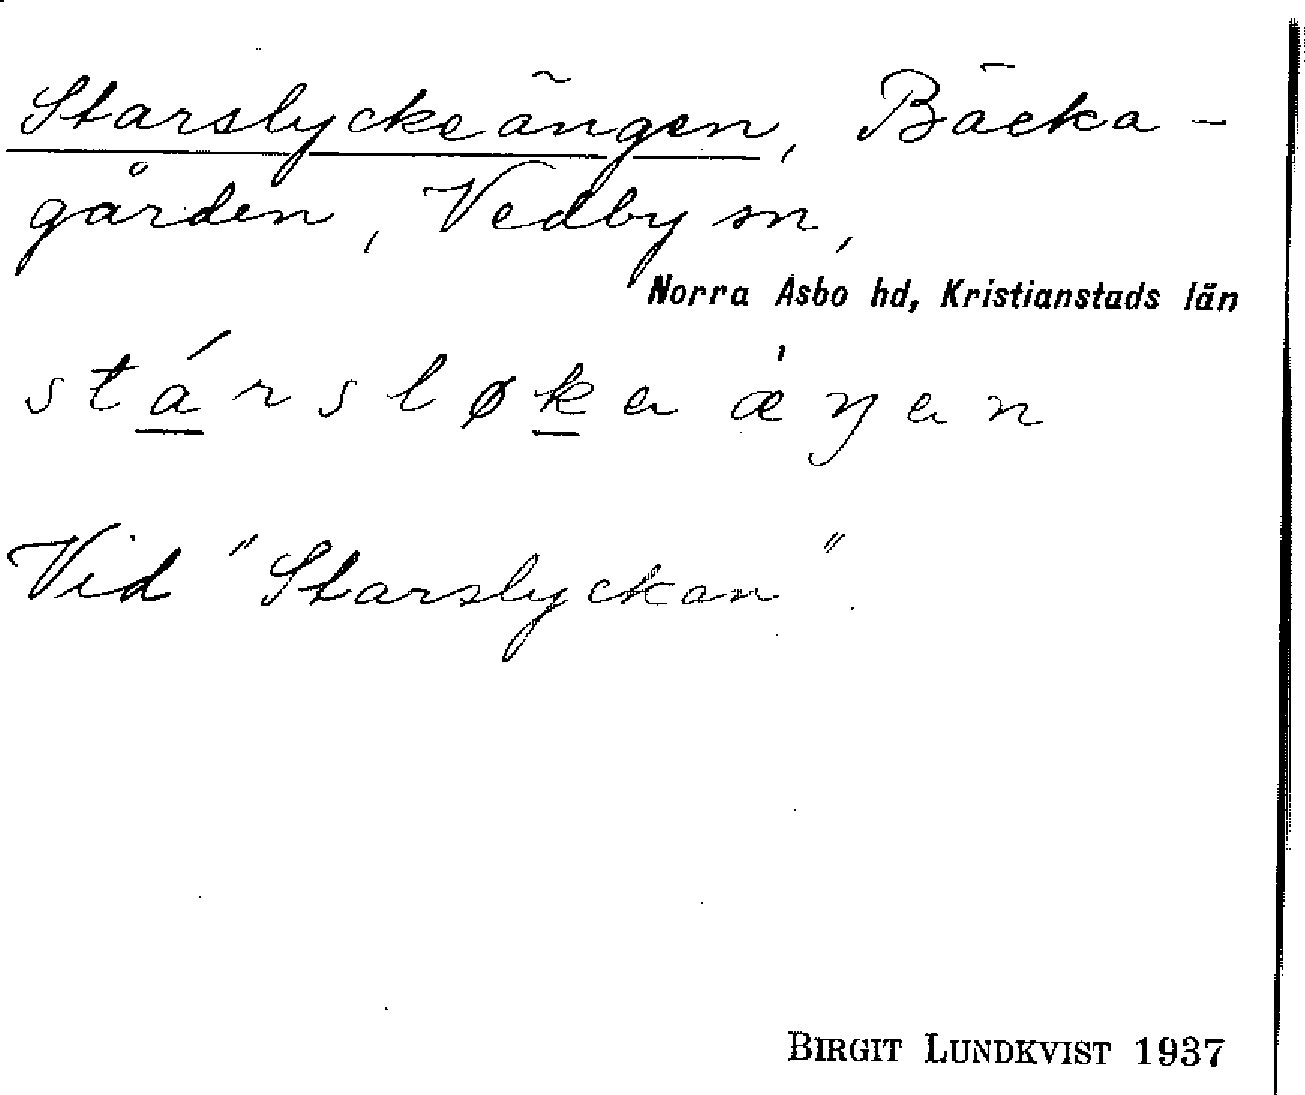 Starslyckeängen, Bäcka-
gården, Vedby sn,
Norra Åsbo hd, Kristianstads län
stársløkaæ̀ŋan
Vid "Starslyckan".
BIRGIT LUNDKVIST 1937